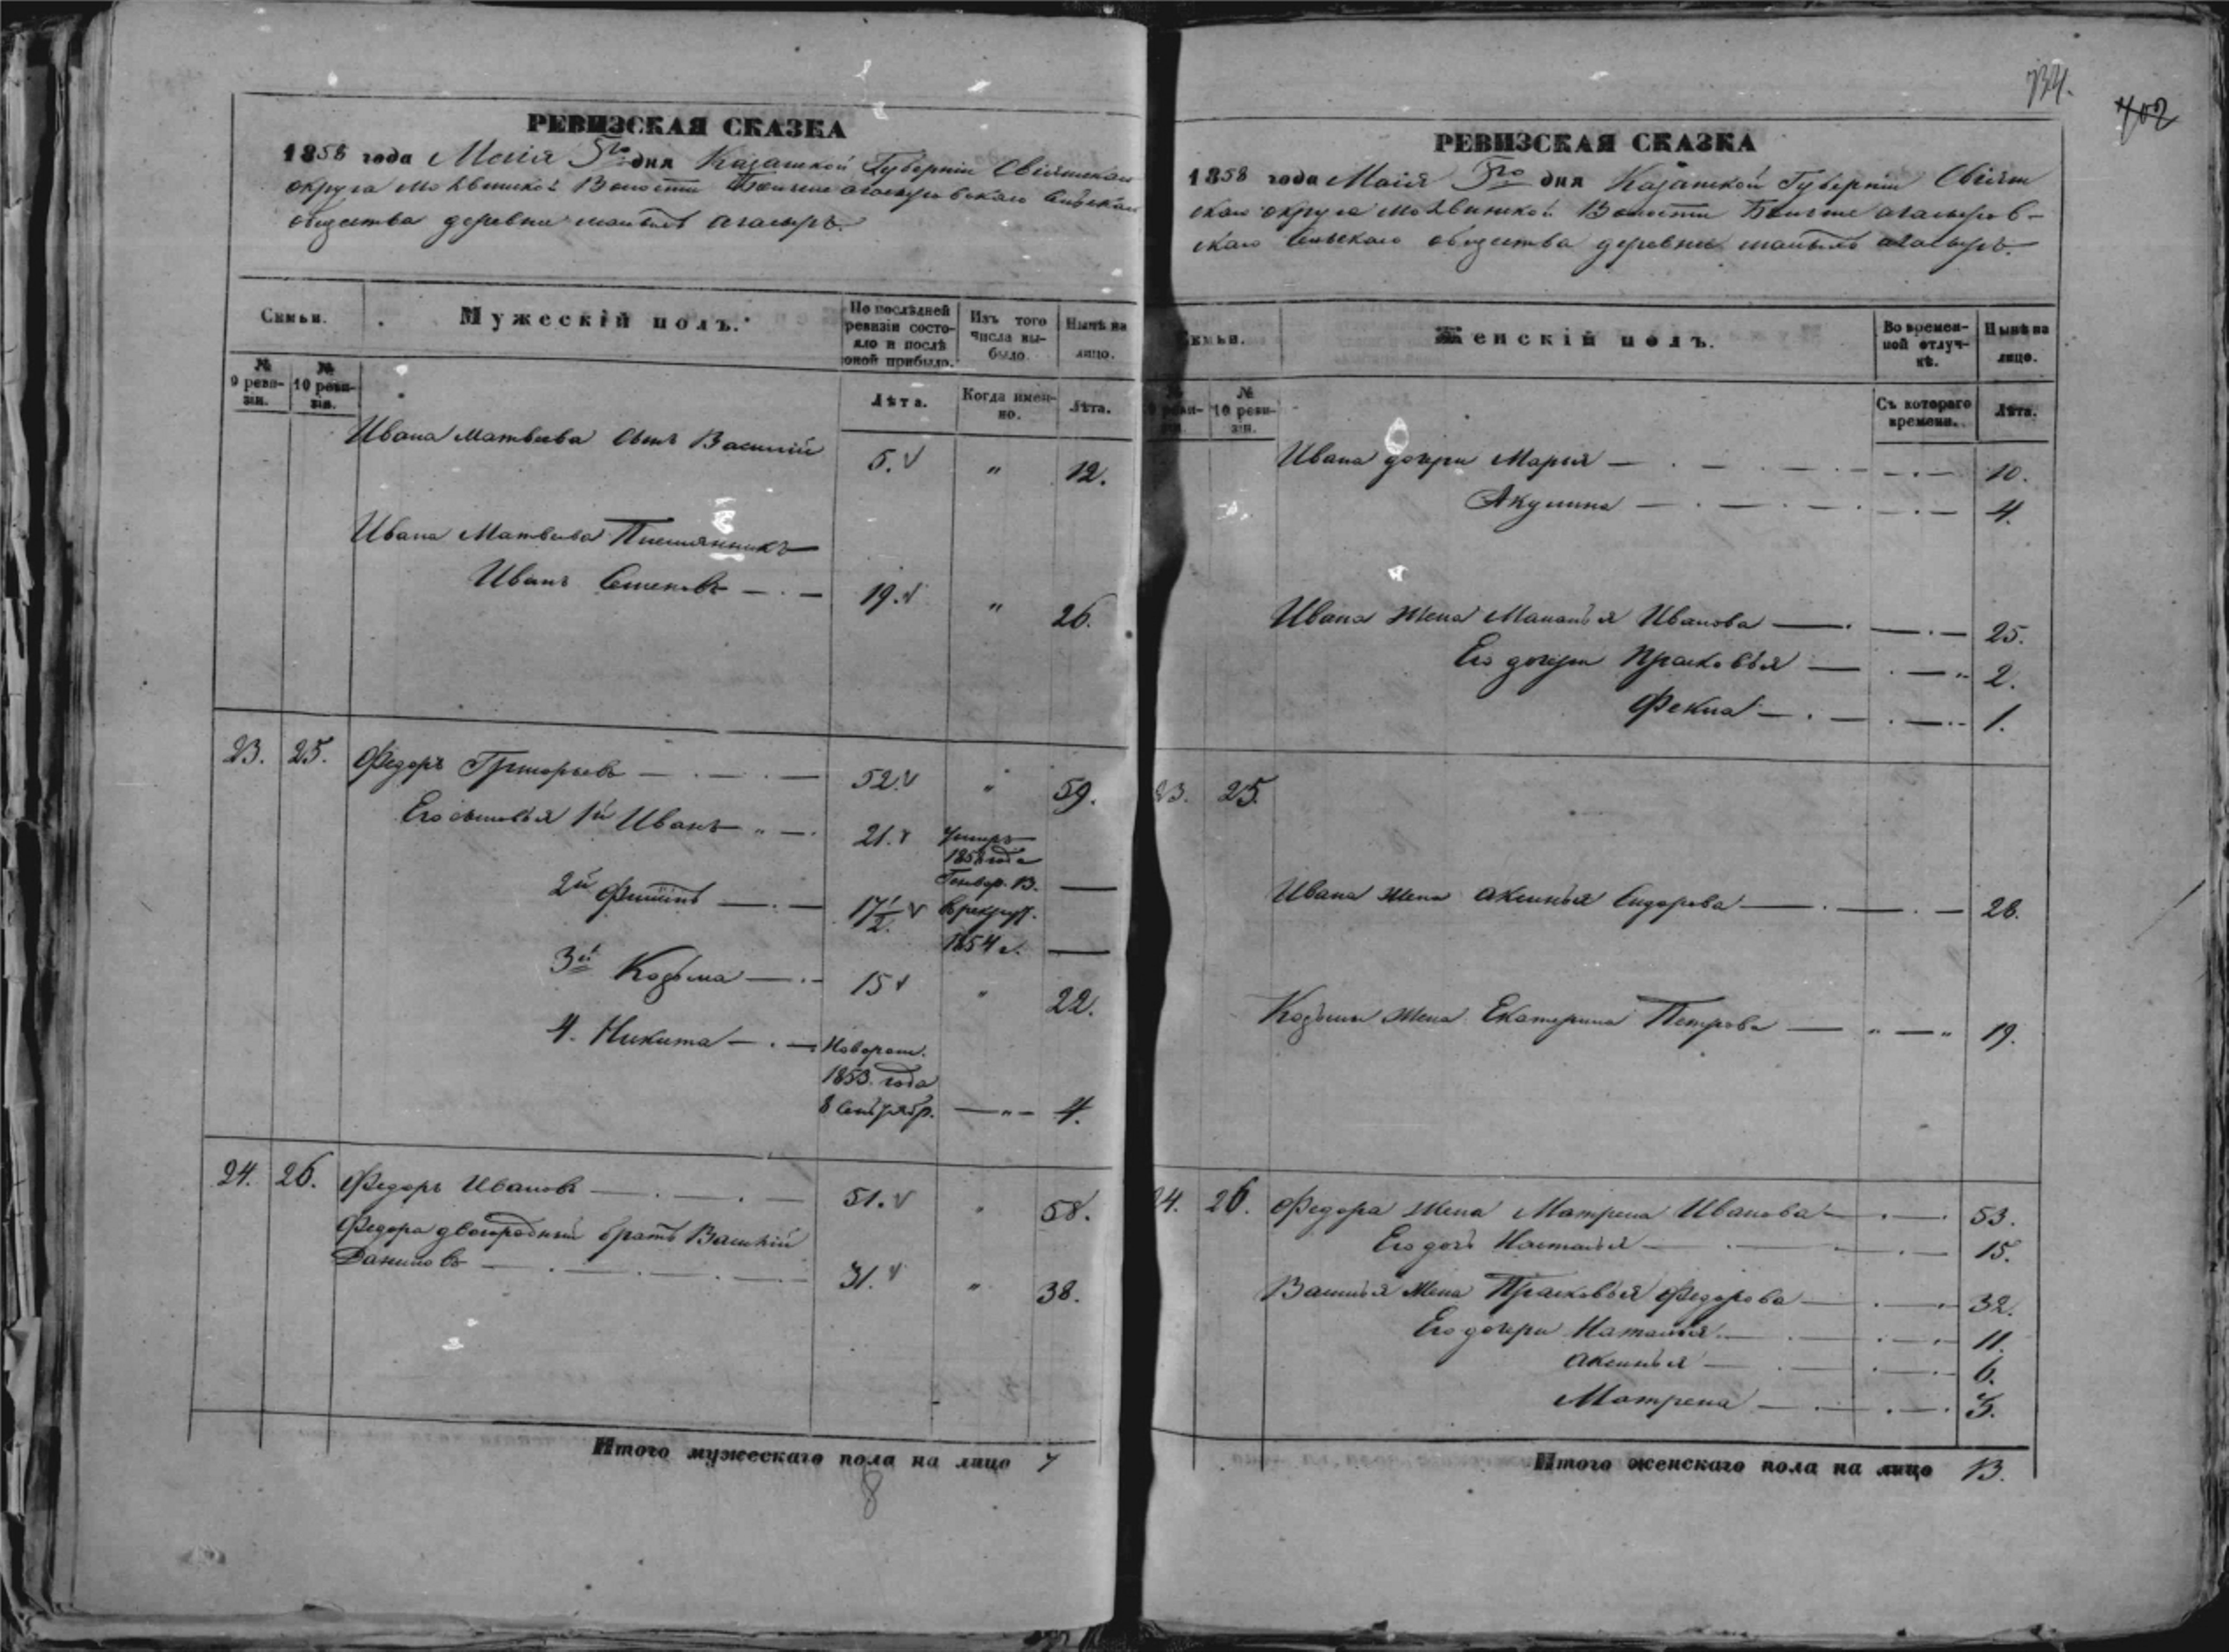 РЕВИЗСКАЯ СКАЗКА
1858 года Маія 5го дня Казанской Губерніи Свіяжскаго
округа Молвинской Волости сельскаго
общества деревни
Семьи. Мужескій полъ. По послѣдней ревизіи состояло и послѣ оной прибыло. Изъ того числа выбыло. Нынѣ на лицо.
№ 9 ревизіи. № 10 ревизіи. Лѣта. Когда именно. Лѣта.
Ивана Матвѣева сынъ Василій 5. " 12.
Ивана Матвѣева Племянникъ
Иванъ Семеновъ 19. " 26.
23. 25. Федоръ Григорьевъ 52. " 59.
Его сыновья 1й Иванъ 21. Умеръ
1858 года
Генвар. 13. —
2й Филипъ 17 1/2 В рекрут.
1854 г. —
3й Козьма 15 " 22.
4. Никита Новорож.
1853. года
8 Сентябр. " 4.
24. 26. Федоръ Ивановъ 51. " 58.
Федора двоюродный братъ Василій
Даниловъ 31. " 38.
Итого мужескаго пола на лицо 7
8
734.
402
РЕВИЗСКАЯ СКАЗКА
1858 года Маія 5го дня Казанской Губерніи Свіяж
скаго округа Молвинской Волости
скаго сельскаго общества деревни
Семьи. Женскій полъ. Во временной отлучкѣ. Нынѣ на лицо.
№ 9 ревизіи. № 10 ревизіи. Съ котораго времени. Лѣта.
Ивана дочери Марья 10.
Акулина 4.
Ивана жена Маланья Иванова 25.
Его дочери Прасковья 2.
Фекла 1.
23. 25.
Ивана жена Аксинья Сидорова 28.
Козьмы жена Екатерина Петрова 19.
24. 26. Федора жена Матрена Иванова 53.
Его дочь Наталья 15.
Василья жена Прасковья Федорова 32.
Его дочери Наталья 11.
Аксинья 6.
Матрена 3.
Итого женскаго пола на лицо 13.